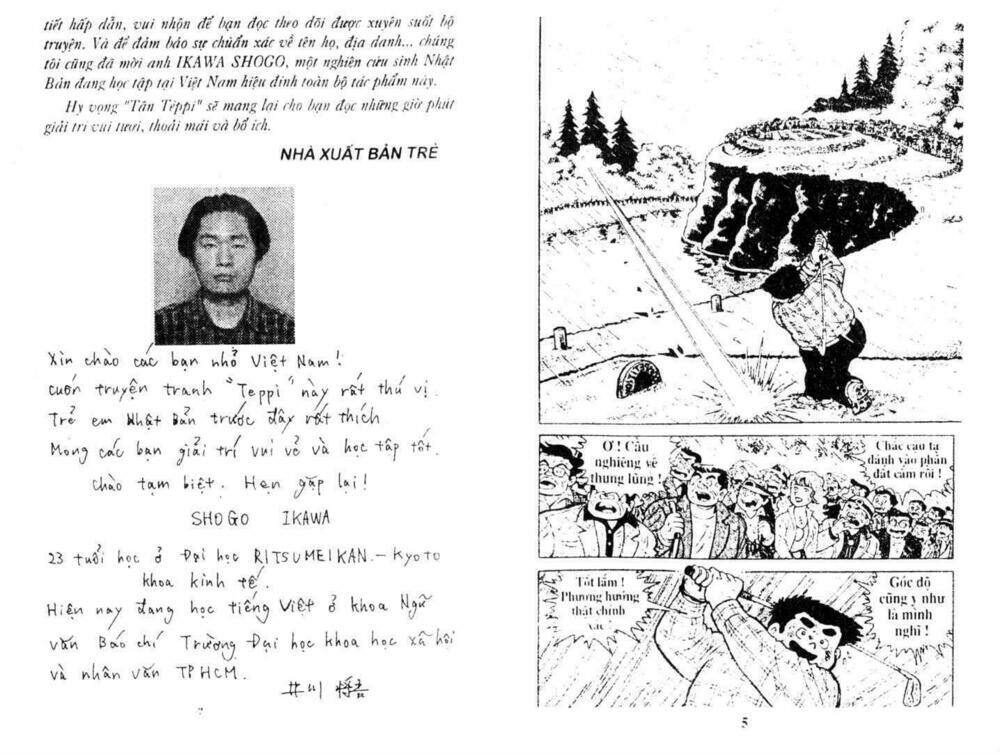 tiết hấp dẫn, vui nhộn để bạn đọc theo dõi được xuyên suốt bộ
truyện. Và để đảm bảo sự chuẩn xác về tên họ, địa danh... chúng
tôi cũng đã mời anh IKAWA SHOGO, một nghiên cứu sinh Nhật
Bản đang học tập tại Việt Nam hiệu đính toàn bộ tác phẩm này.
Hy vọng "Tân Têppi" sẽ mang lại cho bạn đọc những giờ phút
giải trí vui tươi, thoải mái và bổ ích.
NHÀ XUẤT BẢN TRẺ
Xin chào các bạn nhỏ Việt Nam!
cuốn truyện tranh "Teppi" này rất thú vị.
Trẻ em Nhật Bản trước đây rất thích
Mong các bạn giải trí vui vẻ và học tập tốt.
chào tạm biệt. Hẹn gặp lại!
SHOGO IKAWA
23 tuổi học ở Đại học RITSUMEIKAN.-Kyoto
khoa kinh tế.
Hiện nay đang học tiếng Việt ở khoa Ngữ
văn Báo chí Trường Đại học khoa học xã hội
và nhân văn TPHCM.
井川
Ơ! Cầu
nghiêng về
thung lũng!
Chắc cậu ta
đánh vào phần
đất cấm rồi!
Tốt lắm!
Phương hướng
thật chính
xác!
Góc độ
cũng y như
là mình
nghĩ!
5